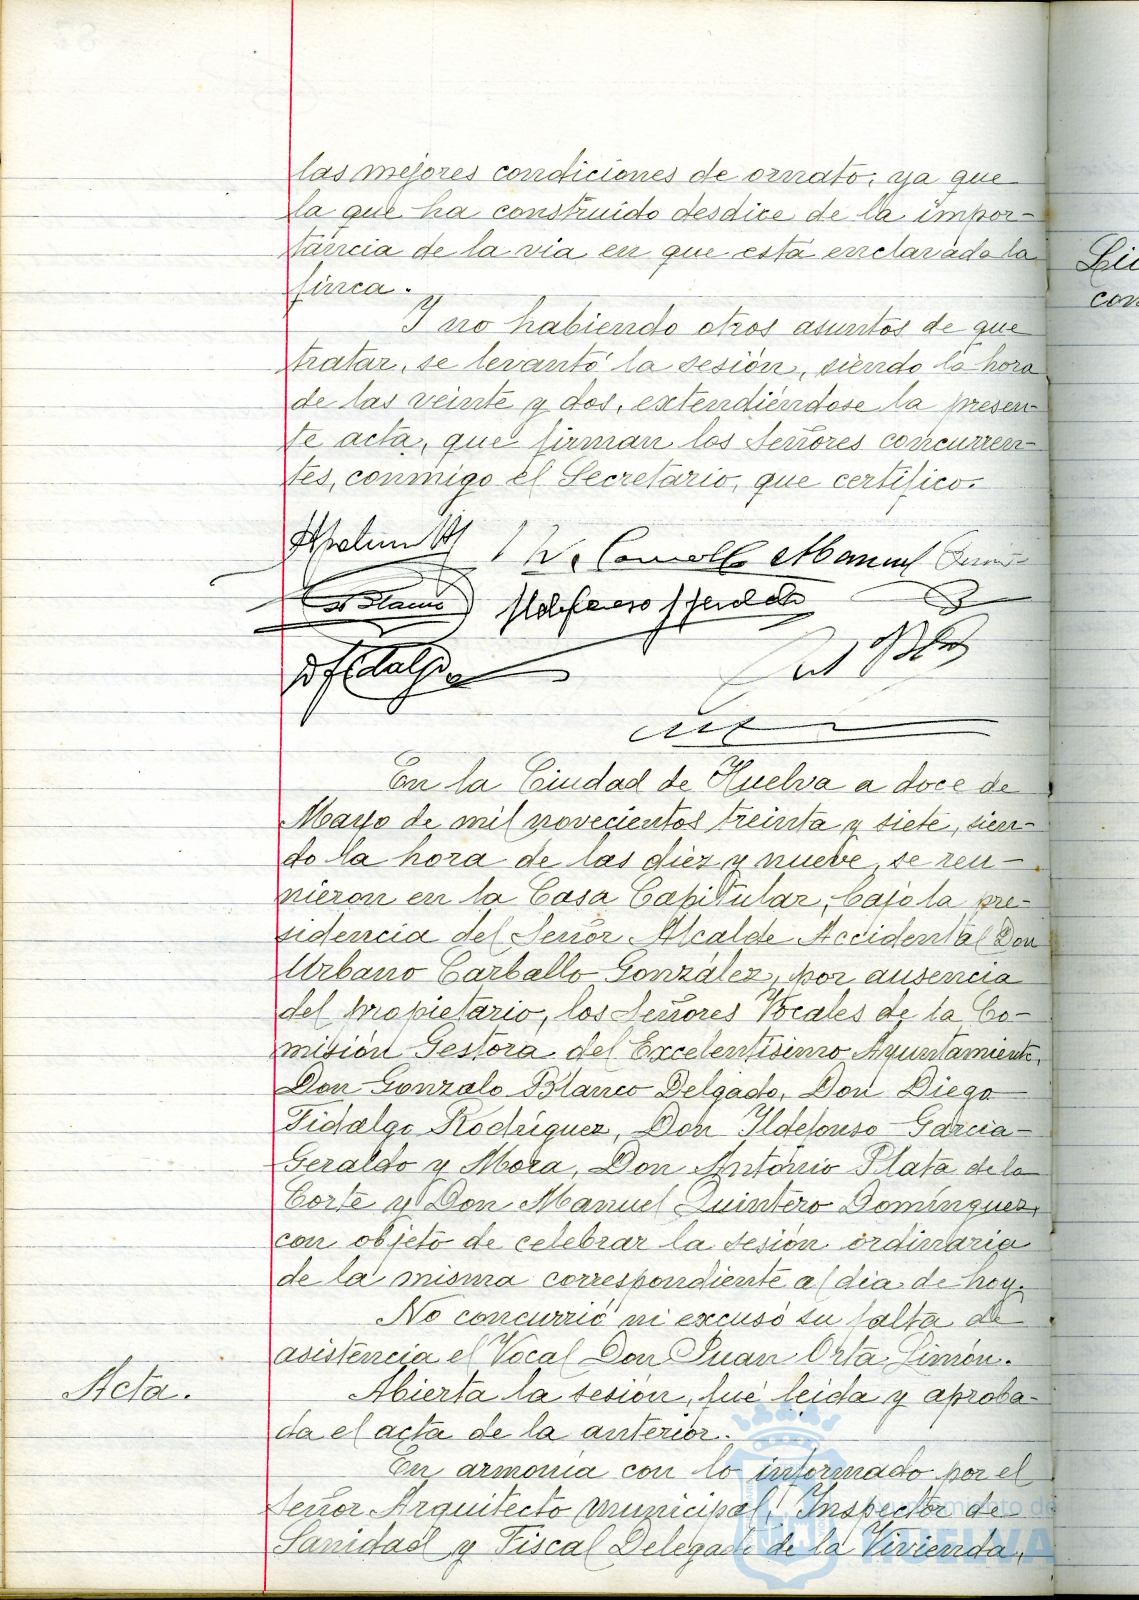 las mejores condiciones de ornato, ya que
la que ha construido desdice de la impor-
tancia de la via en que está enclavada la
finca.
Y no habiendo otros asuntos de que
tratar, se levantó la sesión, siendo la hora
de las veinte y dos, extendiéndose la presen-
te acta, que firman los Señores concurren-
tes, conmigo el Secretario, que certifico.
Manuel
Blanco Ildefonso
Fidalgo
En la Ciudad de Huelva a doce de
Mayo de mil novecientos treinta y siete, sien-
do la hora de las diez y nueve, se reu-
nieron en la Casa Capitular, bajo la pre-
sidencia del Señor Alcalde Accidental Don
Urbano Carballo González, por ausencia
del propietario, los Señores Vocales de la Co-
misión Gestora del Excelentísimo Ayuntamiento,
Don Gonzalo Blanco Delgado, Don Diego
Fidalgo Rodríguez, Don Ildefonso Garcia-
Geraldo y Mora, Don António Plata de la
Corte y Don Manuel Quintero Domínguez,
con objeto de celebrar la sesión ordinaria
de la misma correspondiente al dia de hoy.
No concurrió ni excusó su falta de
asistencia el Vocal Don Juan Orta Limón.
Acta.
Abierta la sesión, fué leida y aproba-
da el acta de la anterior.
En armonia con lo informado por el
Señor Arquitecto municipal, Inspector de
Sanidad y Fiscal Delegado de la Vivienda,
Ayuntamiento de
HUELVA